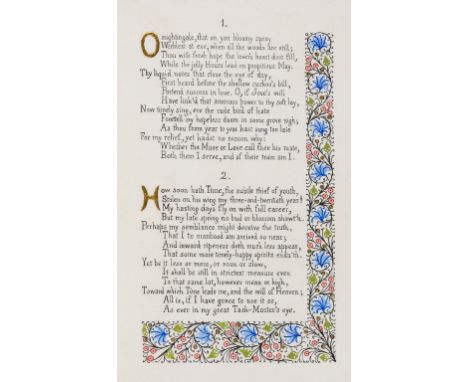 1.
O nightingale, that on yon bloomy spray
Warblest at eve, when all the woods are still;
Thou with fresh hope the lover's heart dost fill,
While the jolly Hours lead on propitious May.
Thy liquid notes that close the eye of day,
First heard before the shallow cuckoo's bill,
Portend success in love. O, if Jove's will
Have link'd that amorous power to thy soft lay,
Now timely sing, ere the rude bird of hate
Foretell my hopeless doom in some grove nigh;
As thou from year to year hast sung too late
For my relief, yet hadst no reason why:
Whether the Muse or Love call thee his mate,
Both them I serve, and of their train am I.
2.
How soon hath Time, the subtle thief of youth,
Stolen on his wing my three-and-twentieth year!
My hasting days fly on with full career,
But my late spring no bud or blossom shew'th.
Perhaps my semblance might deceive the truth,
That I to manhood am arrived so near;
And inward ripeness doth much less appear,
That some more timely-happy spirits endu'th.
Yet be it less or more, or soon or slow,
It shall be still in strictest measure even
To that same lot, however mean or high,
Toward which Time leads me, and the will of Heaven:
All is, if I have grace to use it so,
As ever in my great Task-Master's eye.